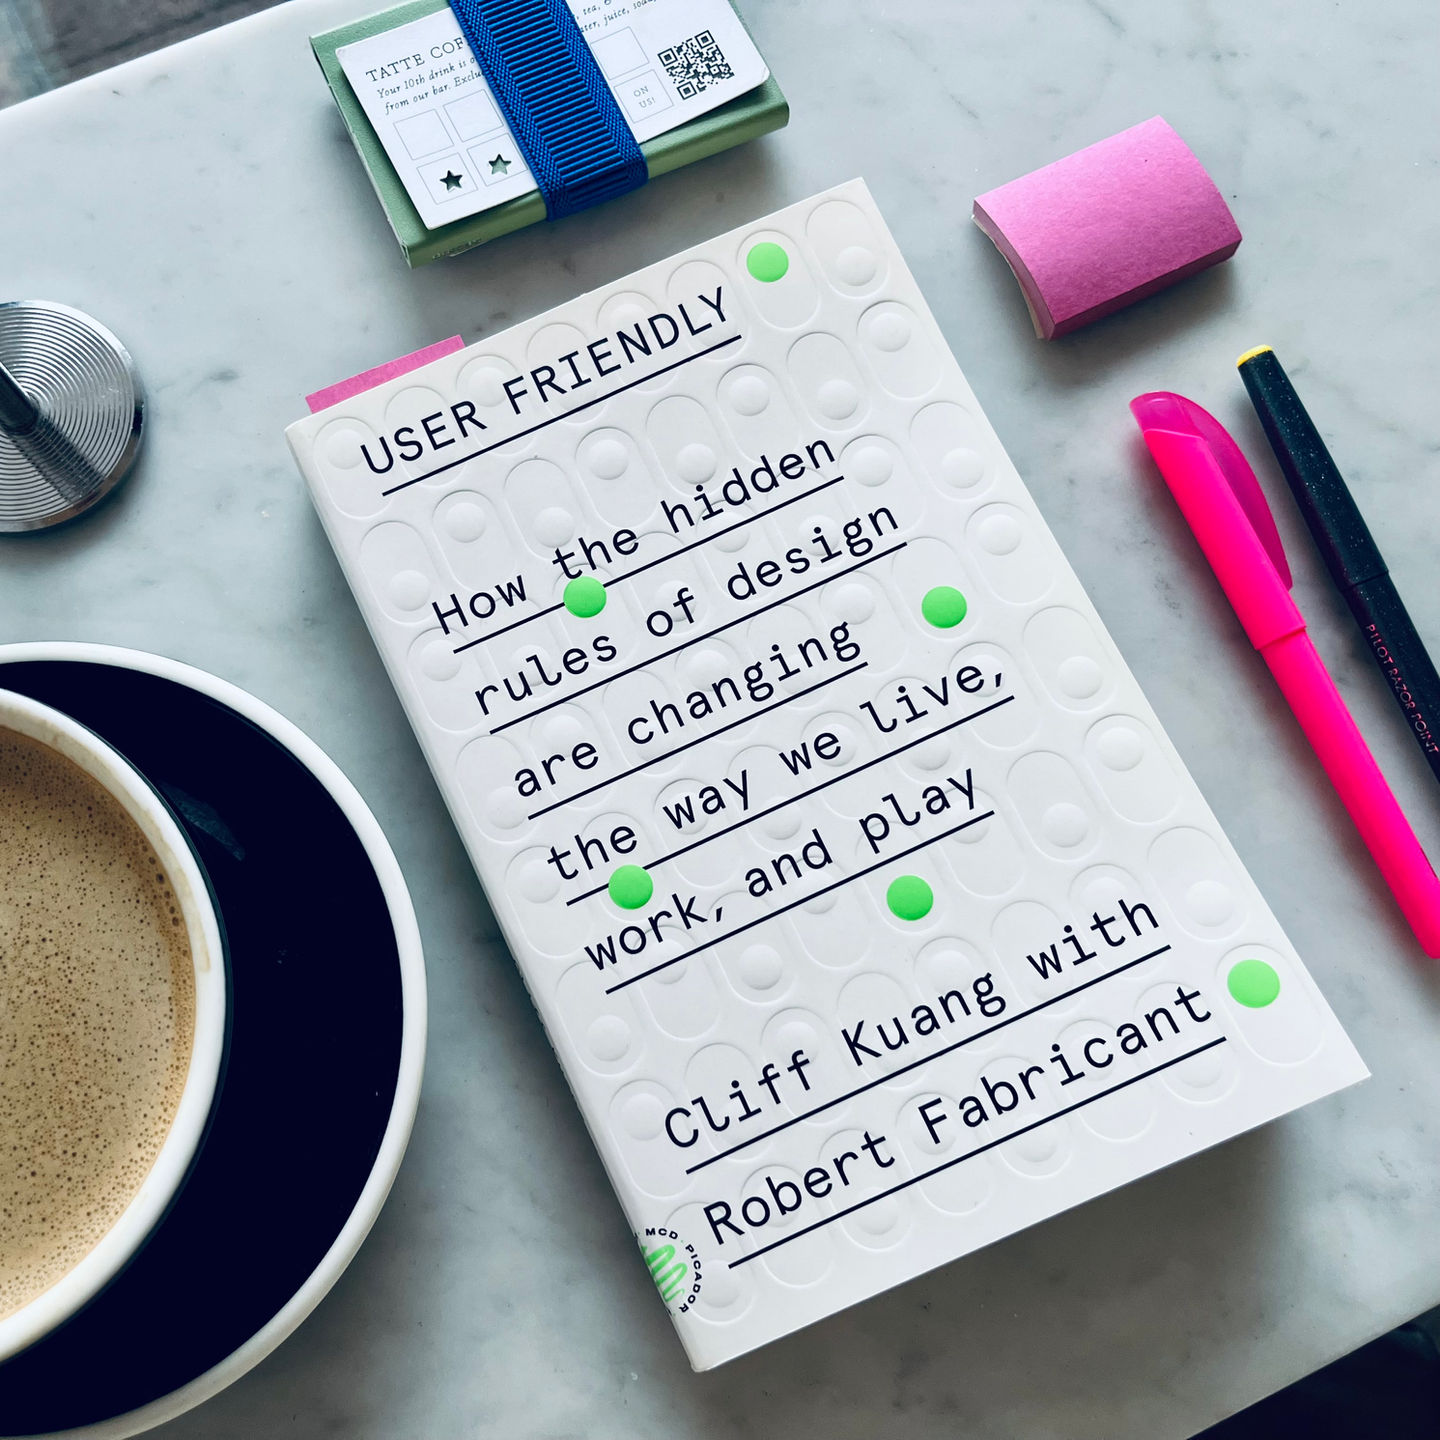 TATTE COF
tea, &
Your 10th drink is o
ter, juice, soda
from our bar. Exclu
ON
US!
USER FRIENDLY
How the hidden
rules of design
are changing
the way we live,
work, and play
Cliff Kuang with
Robert Fabricant
MCD PICADOR
PILOT RAZOR POINT